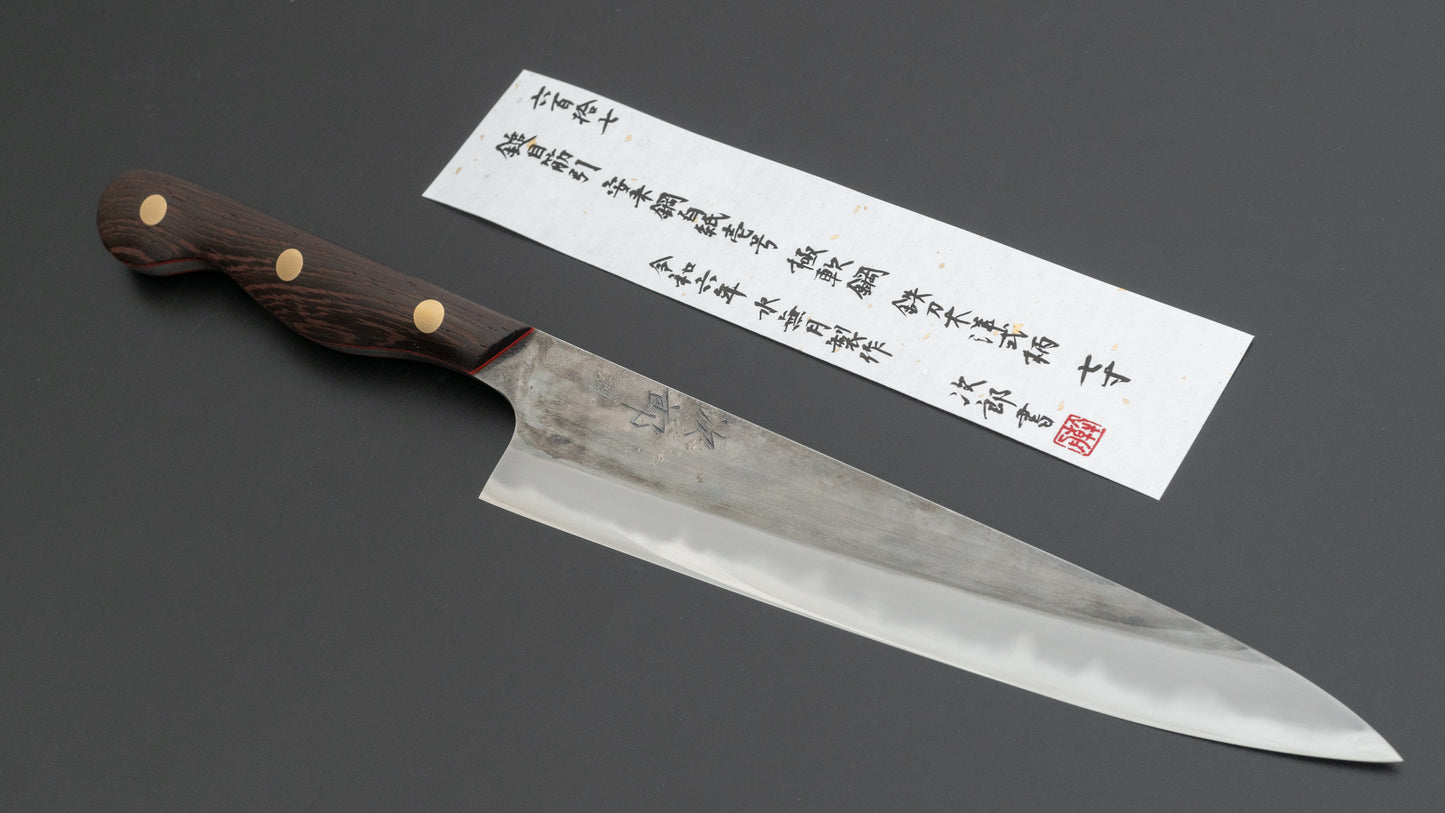 六百拾七
鎚目筋引 安来鋼白紙壱号 極軟鋼 鉄刀木洋式柄 七寸
令和六年 水無月製作 次郎書